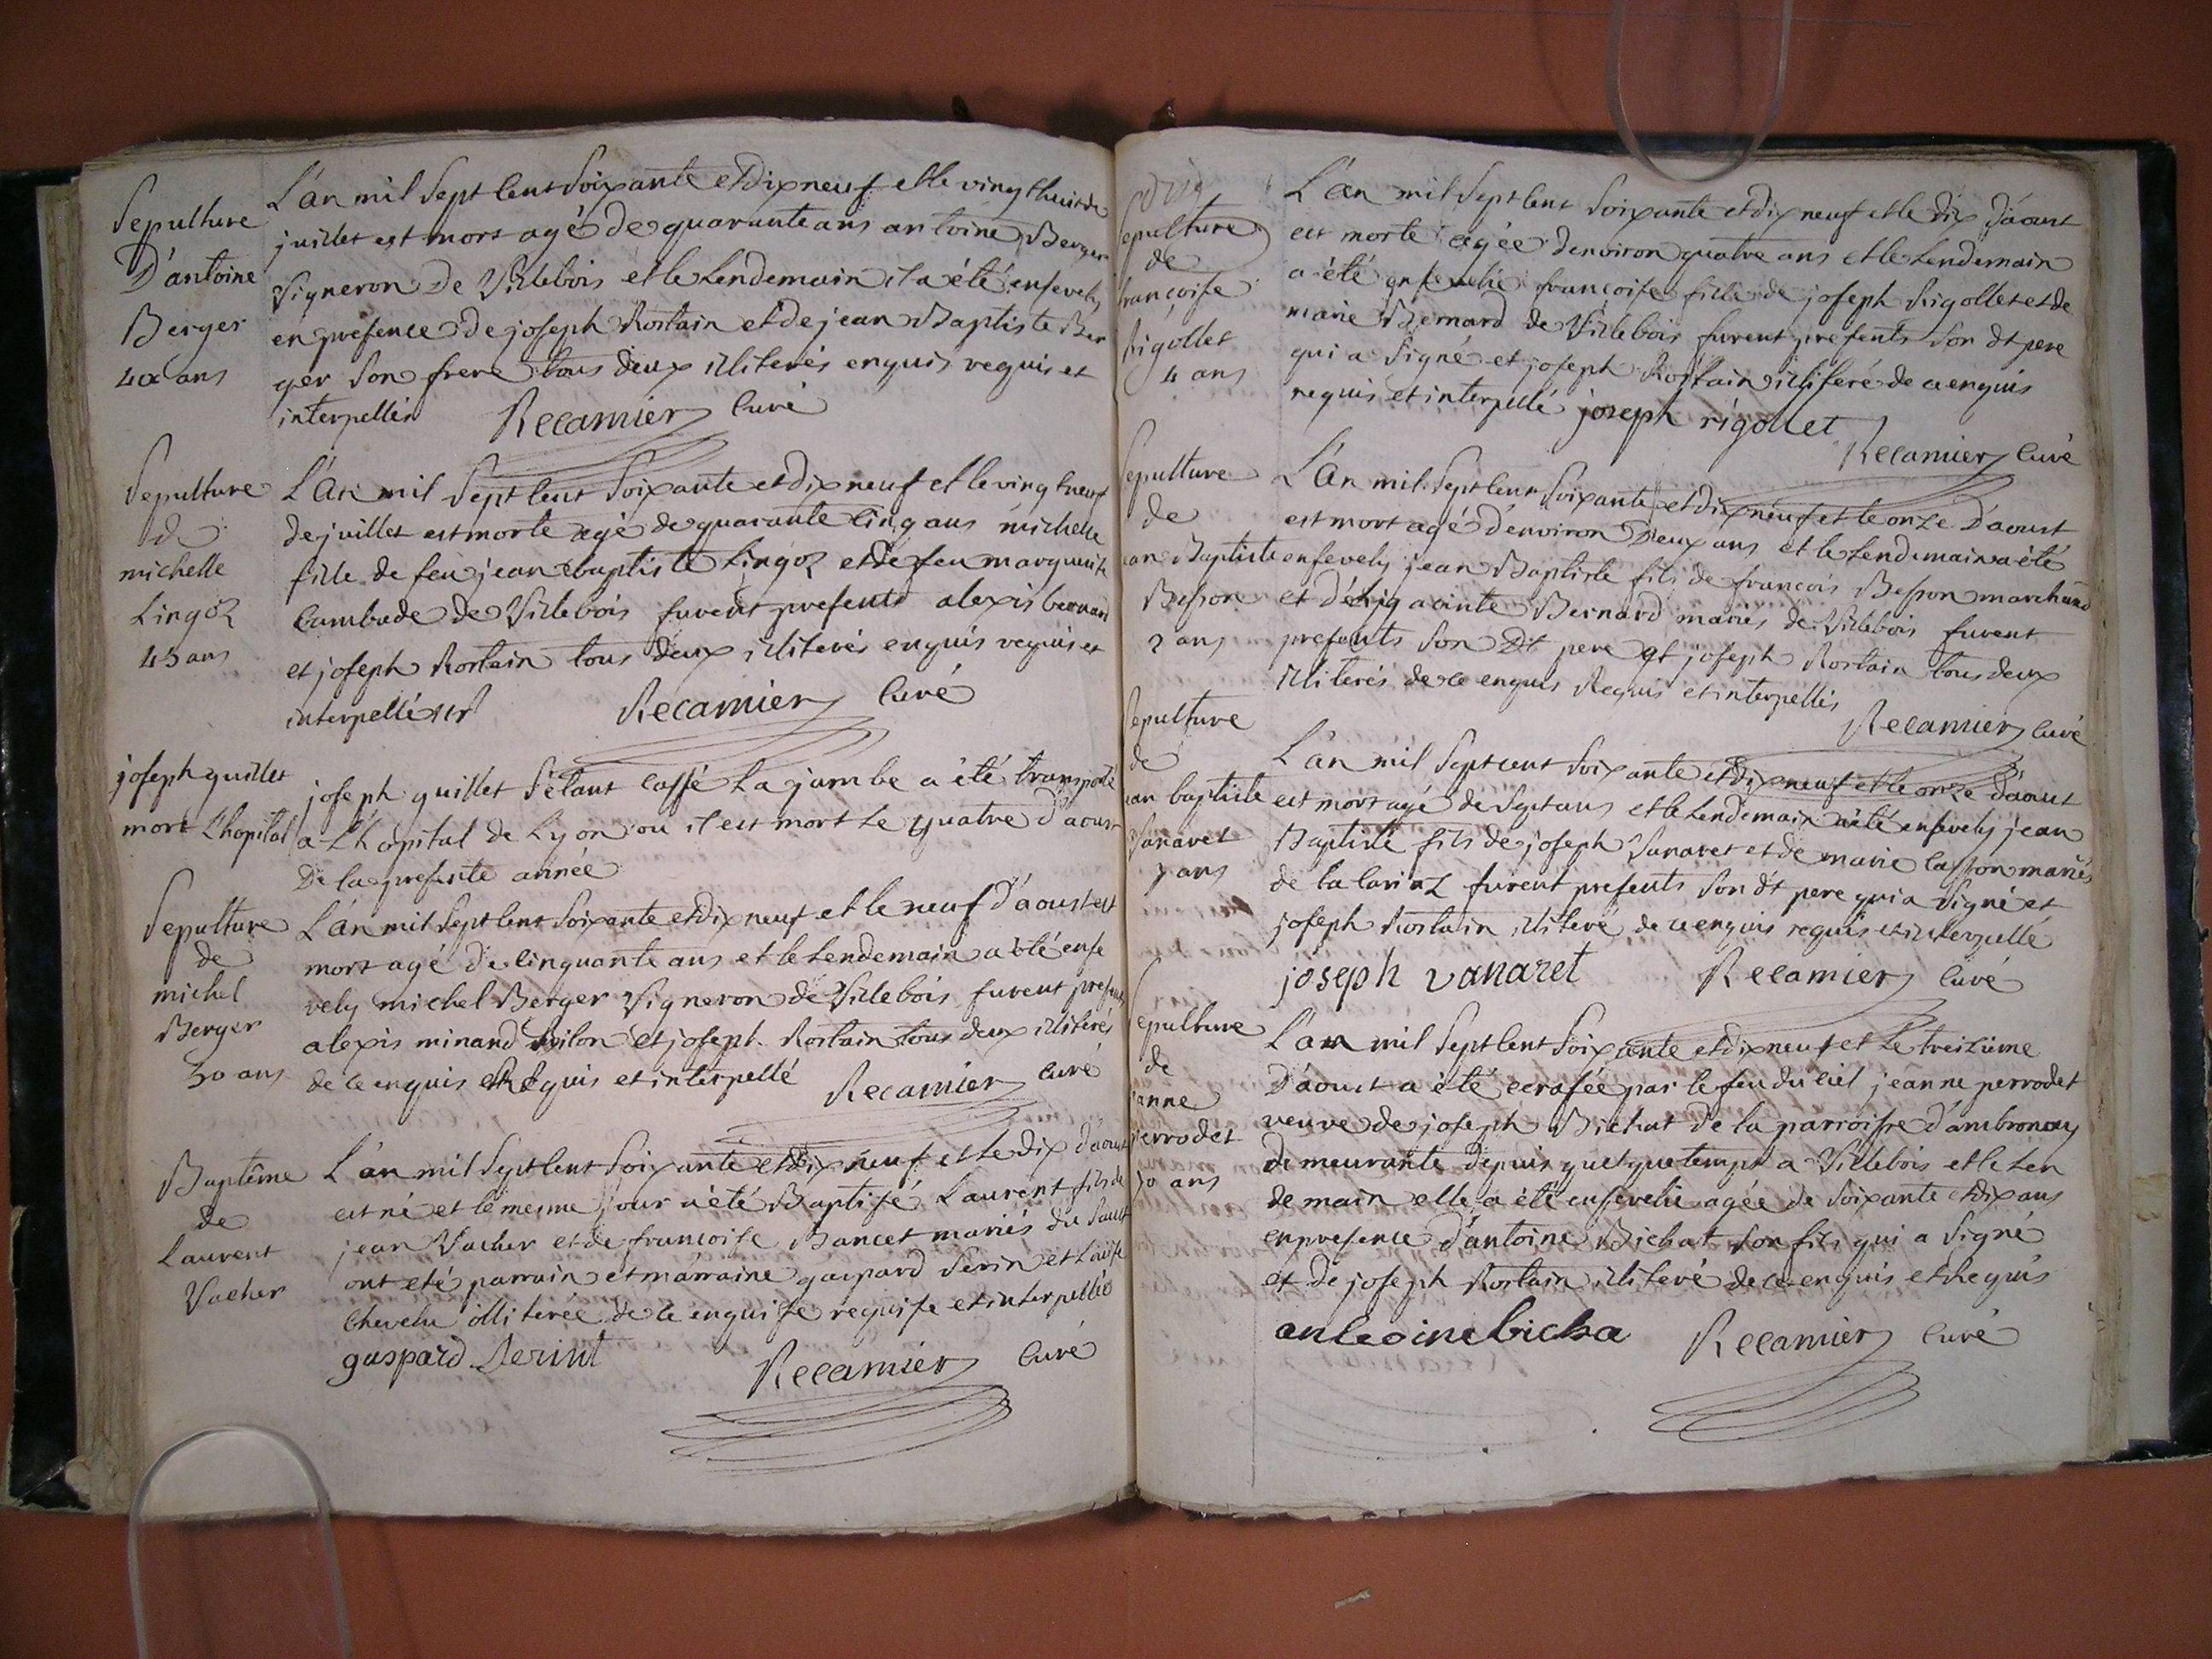 Sepulture
D'antoine
Berger
40 ans
L'an mil Sept Cent Soixante et dix neuf et le vingt huit de
juillet est mort agé de quarante ans antoine Berger
Vigneron de Villebois et le Lendemain il a été ensevely
en presence de joseph Rostain et de jean Baptiste Ber
ger Son frere tous deux illiterés enquis requis et
interpellés Recamier Curé
Sepulture
de
michelle
Lingoz
45 ans
L'An mil Sept Cent Soixante et dix neuf et le vingt neuf
de juillet est morte agé de quarante Cinq ans michelle
fille de feu jean baptiste Lingoz et de feu marguerite
Cambade de Villebois furent presents alexis bernard
et joseph Rostain tous deux illiterés enquis requis et
interpellés Recamier Curé
joseph guillet
mort L'hopital
joseph guillet S'étant Cassé La jambe a été transporté
a L'hôpital de Lyon ou il est mort Le quatre d'aoust
De la presente année
Sepulture
de
michel
Berger
50 ans
L'an mil Sept Cent Soixante et dix neuf et le neuf d'aoust est
mort agé de Cinquante ans et le Lendemain a été ense
vely michel Berger Vigneron de Villebois furent presents
alexis minand et joseph Rostain tous deux illiterés
de ce enquis et Requis et interpellé Recamier Curé
Baptême
de
Laurent
Vacher
L'an mil Sept Cent Soixante et dix neuf et le dix d'aoust
est né et le mesme jour a été Baptisé Laurent fils de
jean Vacher et de francoise Bancet mariés du Sault
ont eté parrain et marraine gaspard Serin et Louise
Chevelu illiterée de ce enquise requise et interpellée
gaspard Serint Recamier Curé
Sepulture
de
francoise
Rigollet
4 ans
L'an mil Sept Cent Soixante et dix neuf et le dix d'aoust
est morte agée d'environ quatre ans et le Lendemain
a été ensevelie francoise fille de joseph Rigollet et de
marie Bernard de Villebois furent presents Son dt pere
qui a Signé et joseph Rostain illiteré de ce enquis
requis et interpellé joseph rigollet
Recamier Curé
Sepulture
de
jean Baptiste
Besson
2 ans
L'An mil Sept Cent Soixante et dix neuf et le onze D'aoust
est mort agé d'environ Deux ans et le Lendemain a été
ensevely jean Baptiste fils de francois Besson marchand
et d'hiacinte Bernard mariés de Villebois furent
presents Son Dit pere et joseph Rostain tous deux
illiterés de ce enquis Requis et interpellés
Recamier Curé
Sepulture
de
jean baptiste
Vanaret
7 ans
L'an mil Sept cent Soixante et dix neuf et le onze d'aoust
est mort agé de Sept ans et le Lendemain a été ensevely jean
Baptiste fils de joseph Vanaret et de marie Casson mariés
de furent presents Son dt pere qui a Signé et
joseph Rostain illiteré de ce enquis requis et interpellé
joseph vanaret Recamier Curé
Sepulture
de
jeanne
perrodet
70 ans
L'an mil Sept Cent Soixante et dix neuf et Le treizieme
D'aoust a été ecrasée par le feu du Ciel jeanne perrodet
veuve de joseph Bichat de la parroisse d'ambronay
demeurante depuis quelque temps a Villebois et le Len
demain elle a été ensevelie agée de Soixante et dix ans
en presence d'antoine Bichat Son fils qui a Signé
et de joseph Rostain illiteré de ce enquis et Requis
antoine bicha Recamier Curé